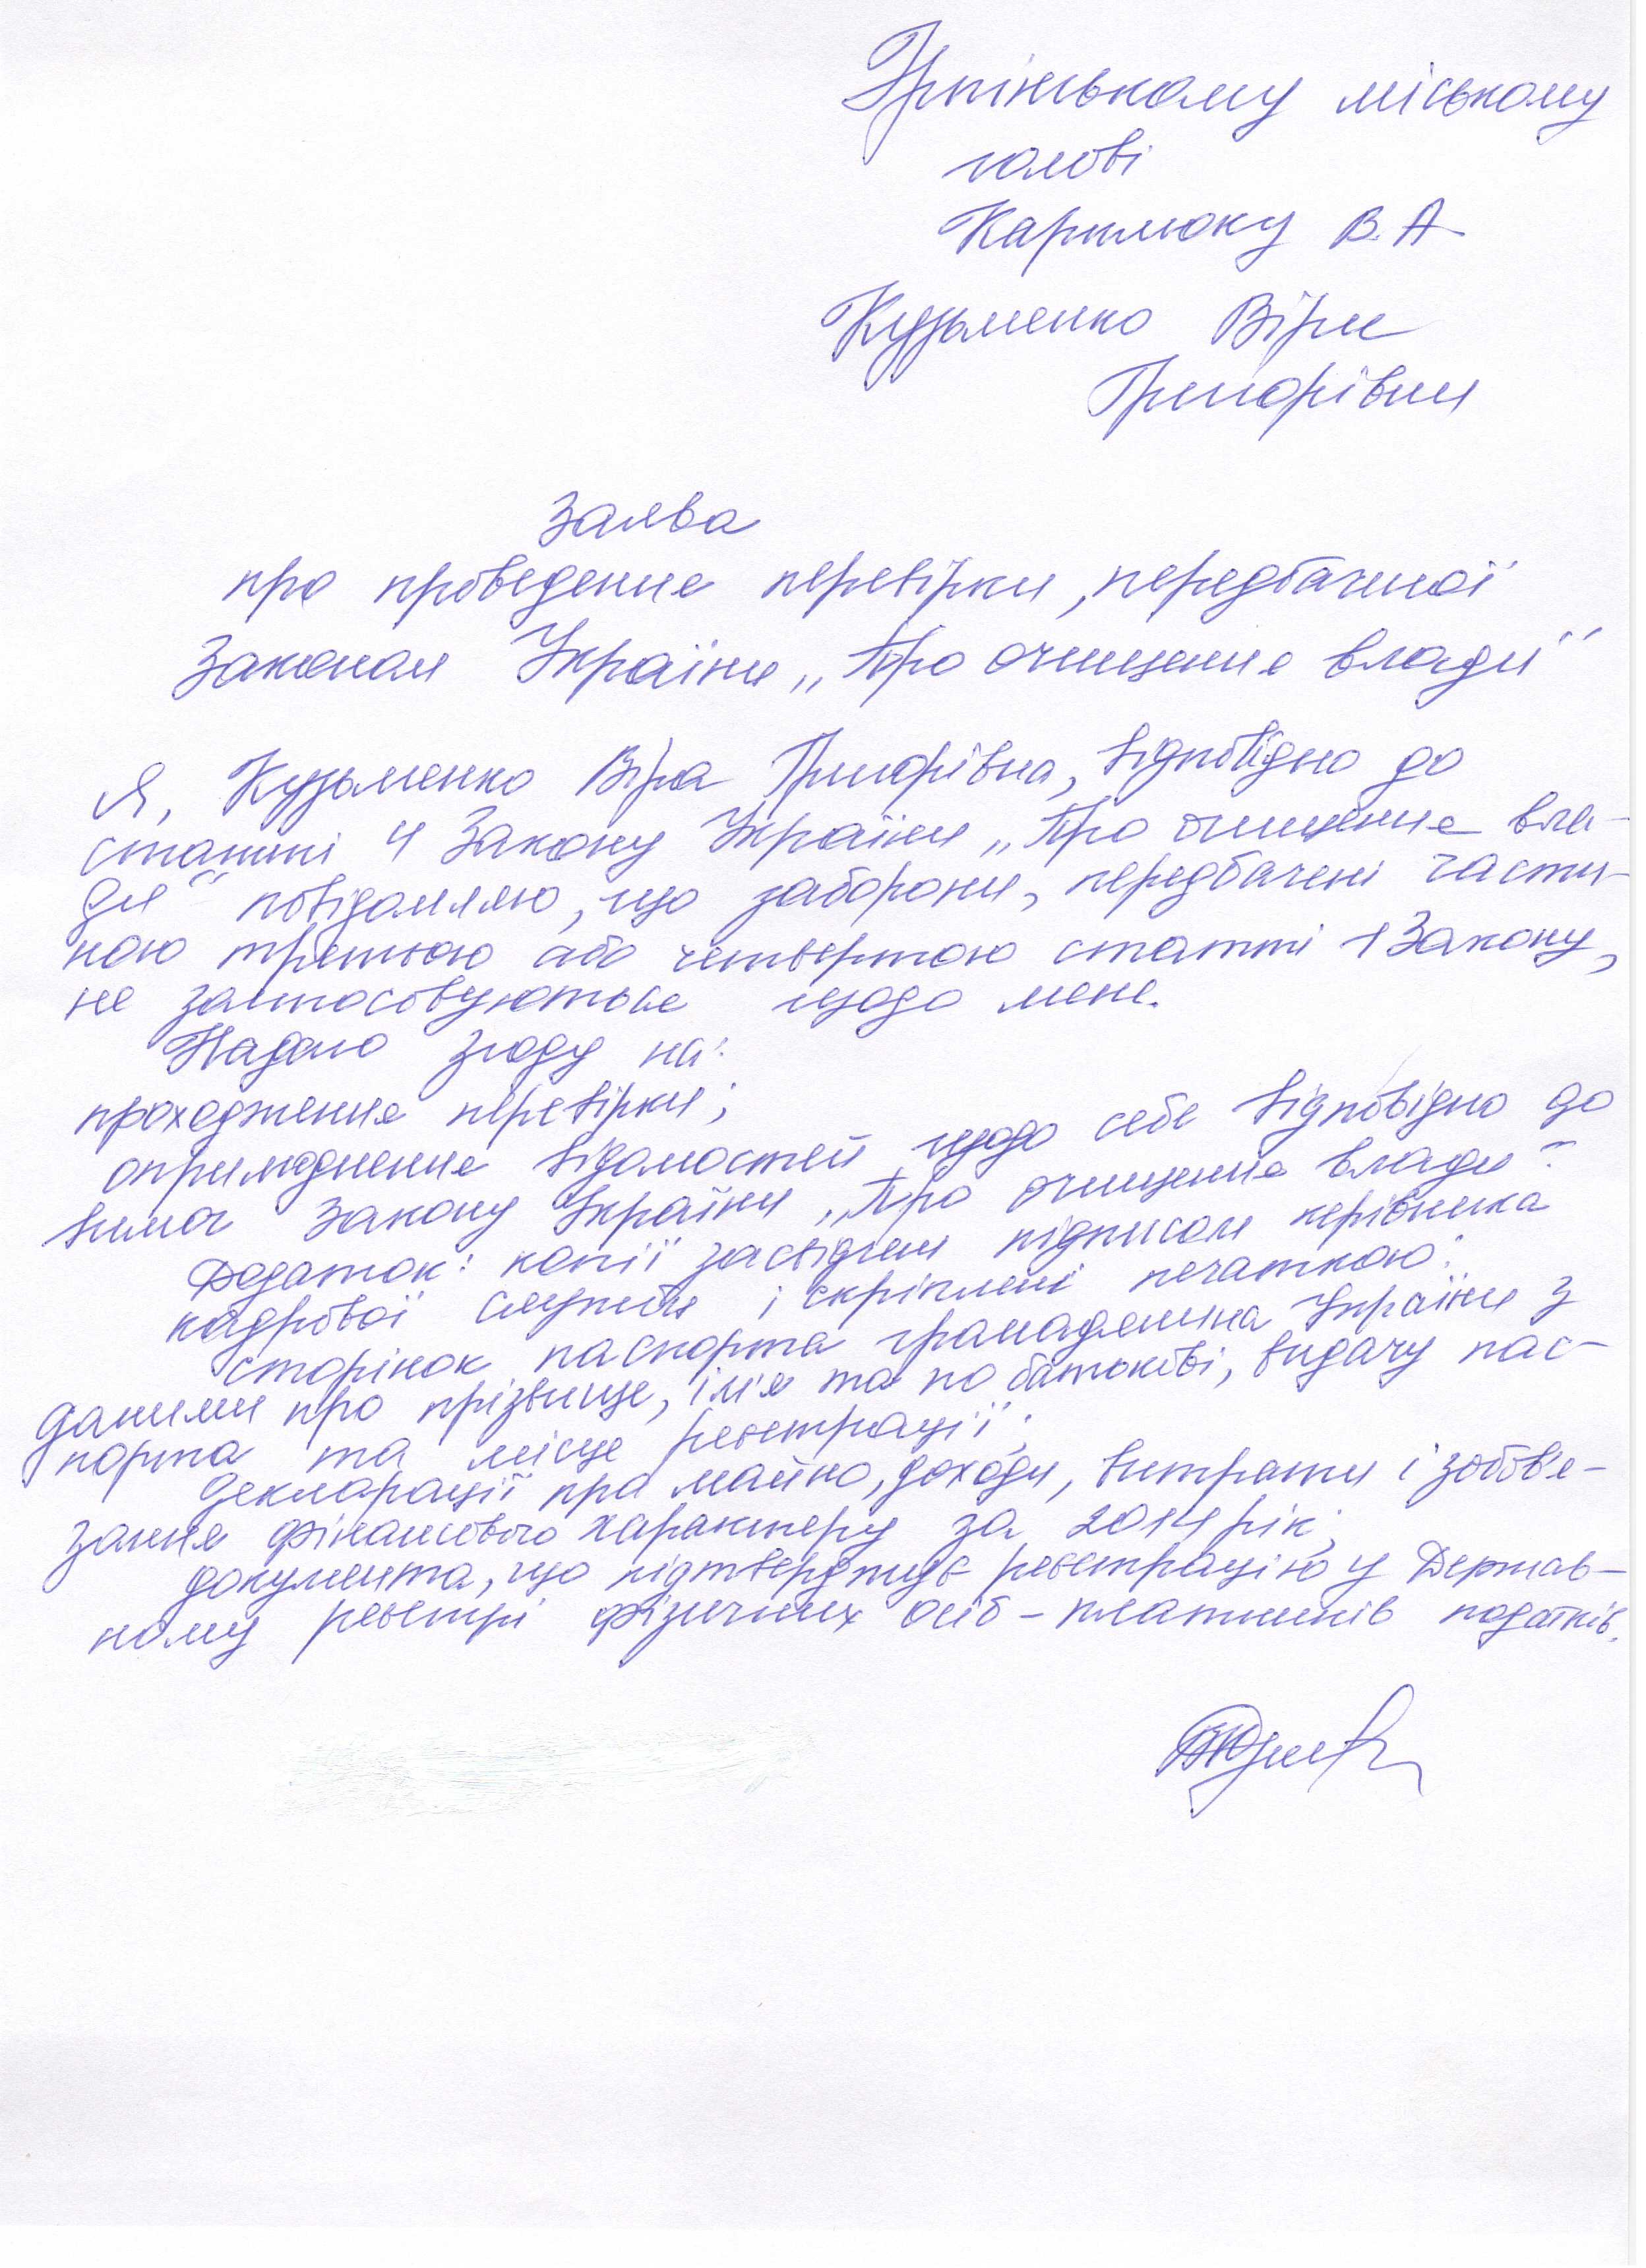 Ірпінському міському
голові
Карплюку В.А
Кузьменко Віри
Григорівни
Заява
про проведення перевірки, передбаченої
Законом України „Про очищення влади"
Я, Кузьменко Віра Григорівна, відповідно до
статті 4 Закону України „Про очищення вла-
ди" повідомляю, що заборони, передбачені части-
ною третьою або четвертою статті 1 Закону,
не застосовуються щодо мене.
Надаю згоду на:
проходження перевірки;
оприлюднення відомостей щодо себе відповідно до
вимог Закону України „Про очищення влади".
Додаток: копії засвідчені підписом керівника
кадрової служби і скріплені печаткою:
сторінок паспорта громадянина України з
даними про прізвище, ім'я та по батькові, видачу пас-
порта та місце реєстрації;
декларації про майно, доходи, витрати і зобов'я-
зання фінансового характеру за 2014 рік;
документа, що підтверджує реєстрацію у Держав-
ному реєстрі фізичних осіб - платників податків.